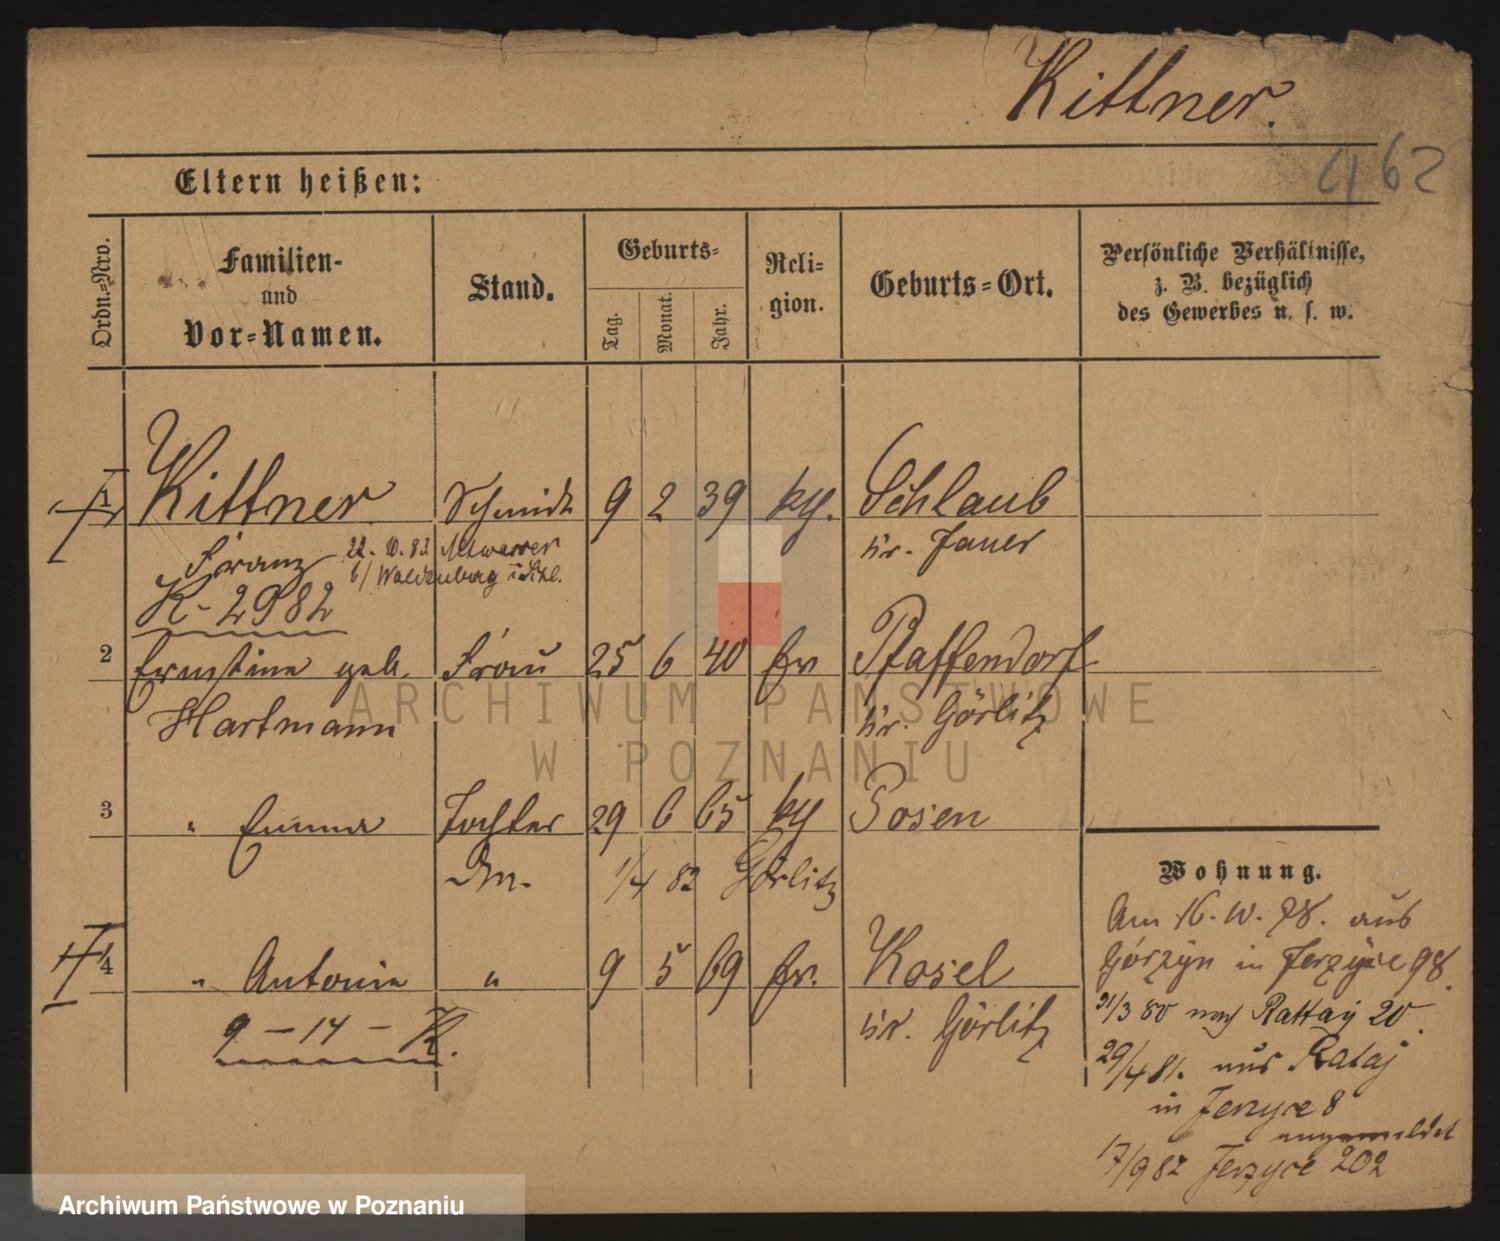 Kittner.
462
Eltern heißen:
Ordn.-Nro.
Familien-
und
Vor-Namen.
Stand.
Geburts-
Tag.
Monat.
Jahr.
Reli-
gion.
Geburts-Ort.
Persönliche Verhältnisse,
z. B. bezüglich
des Gewerbes u. s. w.
1 Kittner Schmidt 9 2 39 Schlaub
Franz Kr. Jauer
K-2982
2 Ernestine geb. Frau 25 6 40 Pfaffendorf
Hartmann Kr. Görlitz
3 " Emma Tochter 29 6 65 Posen
1/4 82 Görlitz
4 " Antonie " 9 5 69 Kosel
9-14-K. Kr. Görlitz
Wohnung.
Am 16. 78. aus
Górzyn in Jerzyce 98.
31/3 80 nach Rattay 20.
29/4 81. aus Rataj
in Jerzyce 8
angemeldet
17/9 82 Jerzyce 202
ARCHIWUM PAŃSTWOWE
W POZNANIU
Archiwum Państwowe w Poznaniu